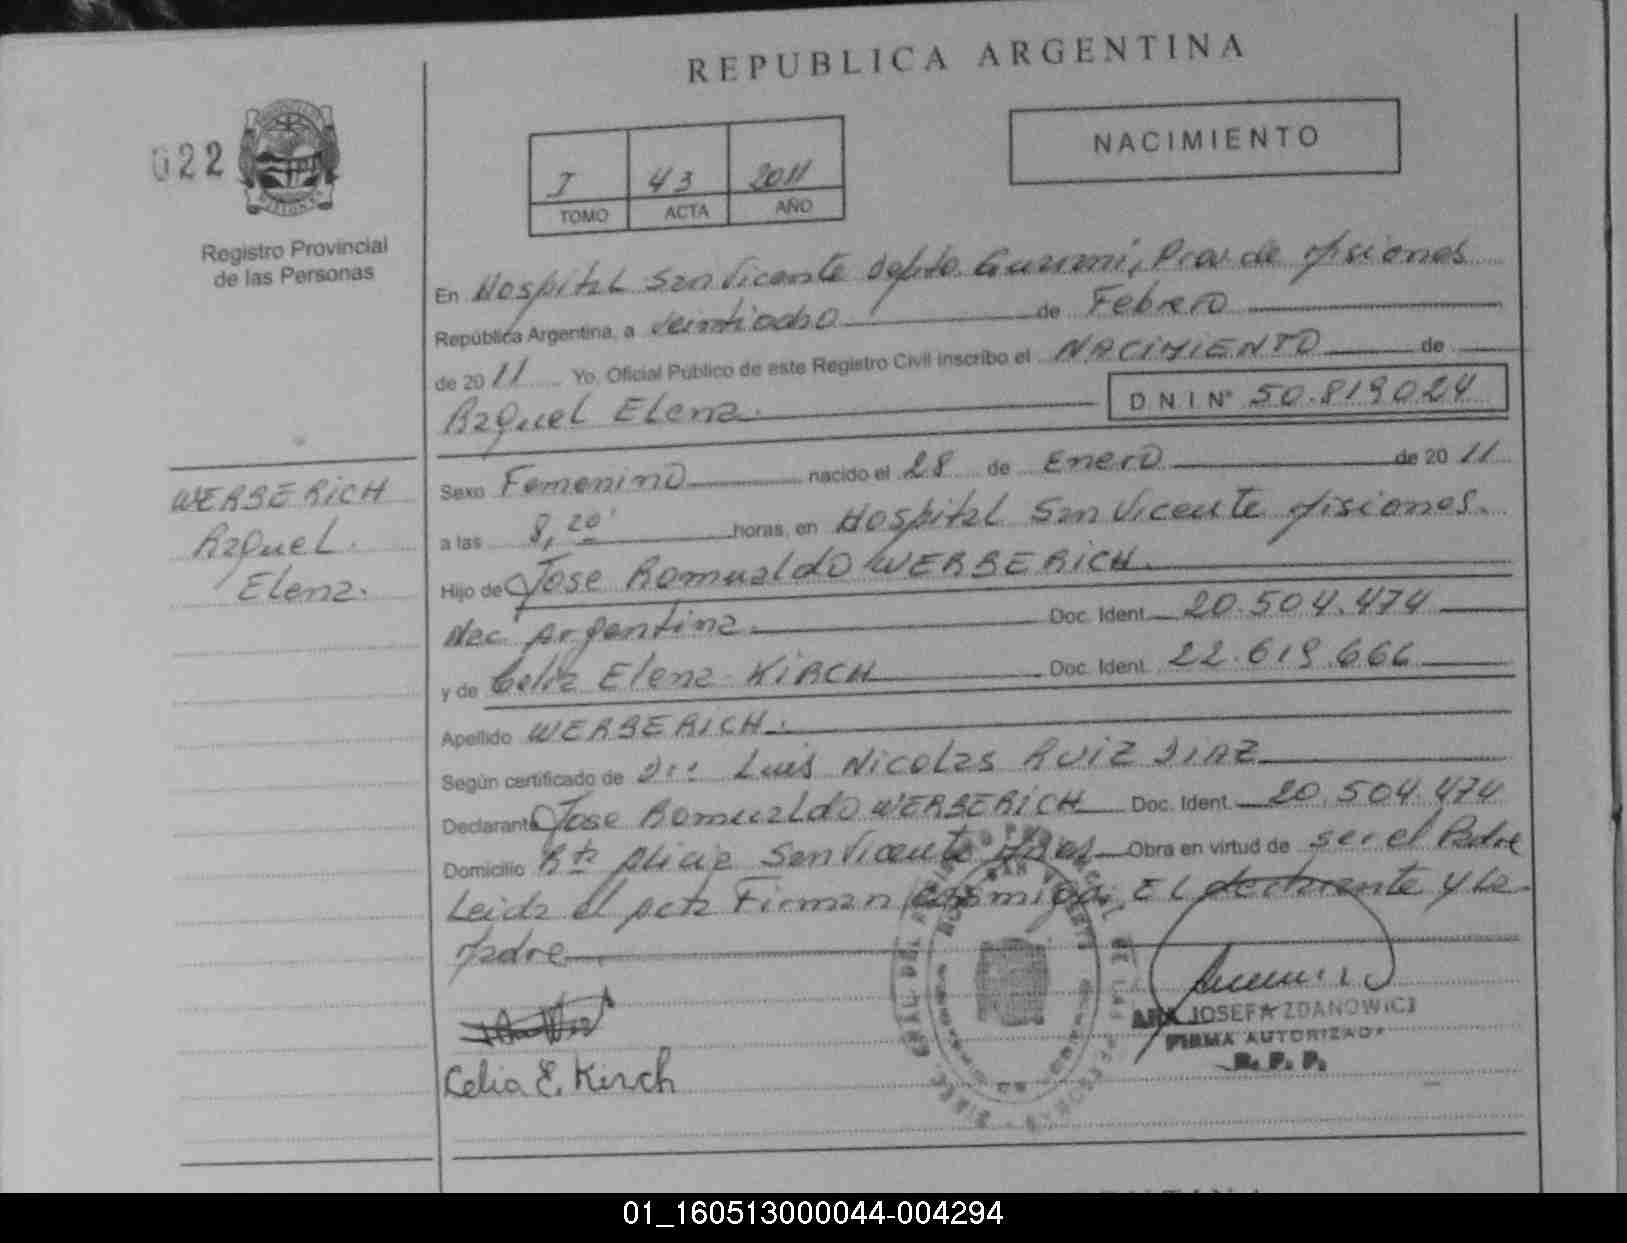 REPUBLICA ARGENTINA
022
NACIMIENTO
I 43 2011
TOMO ACTA AÑO
Registro Provincial
de las Personas
En Hospital San Vicente Depto. Guarani, Prov de Misiones
República Argentina, a veintiocho de Febrero
de 2011 Yo, Oficial Público de este Registro Civil inscribo el NACIMIENTO de
Raquel Elena. D N I Nº 50.819024
Sexo Femenino nacido el 28 de Enero de 2011
WERBERICH
Raquel.
Elena.
a las 8,20' horas, en Hospital San Vicente Misiones.
Hijo de Jose Romualdo WERBERICH.
Nac Argentina. Doc. Ident. 20.504.474
y de Celia Elena KIRCH Doc. Ident. 22.619.666
Apellido WERBERICH.
Según certificado de Dr: Luis Nicolas RUIZ DIAZ
Declarante Jose Romualdo WERBERICH Doc. Ident. 20.504.474
Domicilio San Vicente Obra en virtud de ser el Padre
Leida el acta Firman El declarante y la
Madre
Celia E. Kirch
JOSEFA ZDANOWICZ
FIRMA AUTORIZADA
R. P. P.
01_160513000044-004294